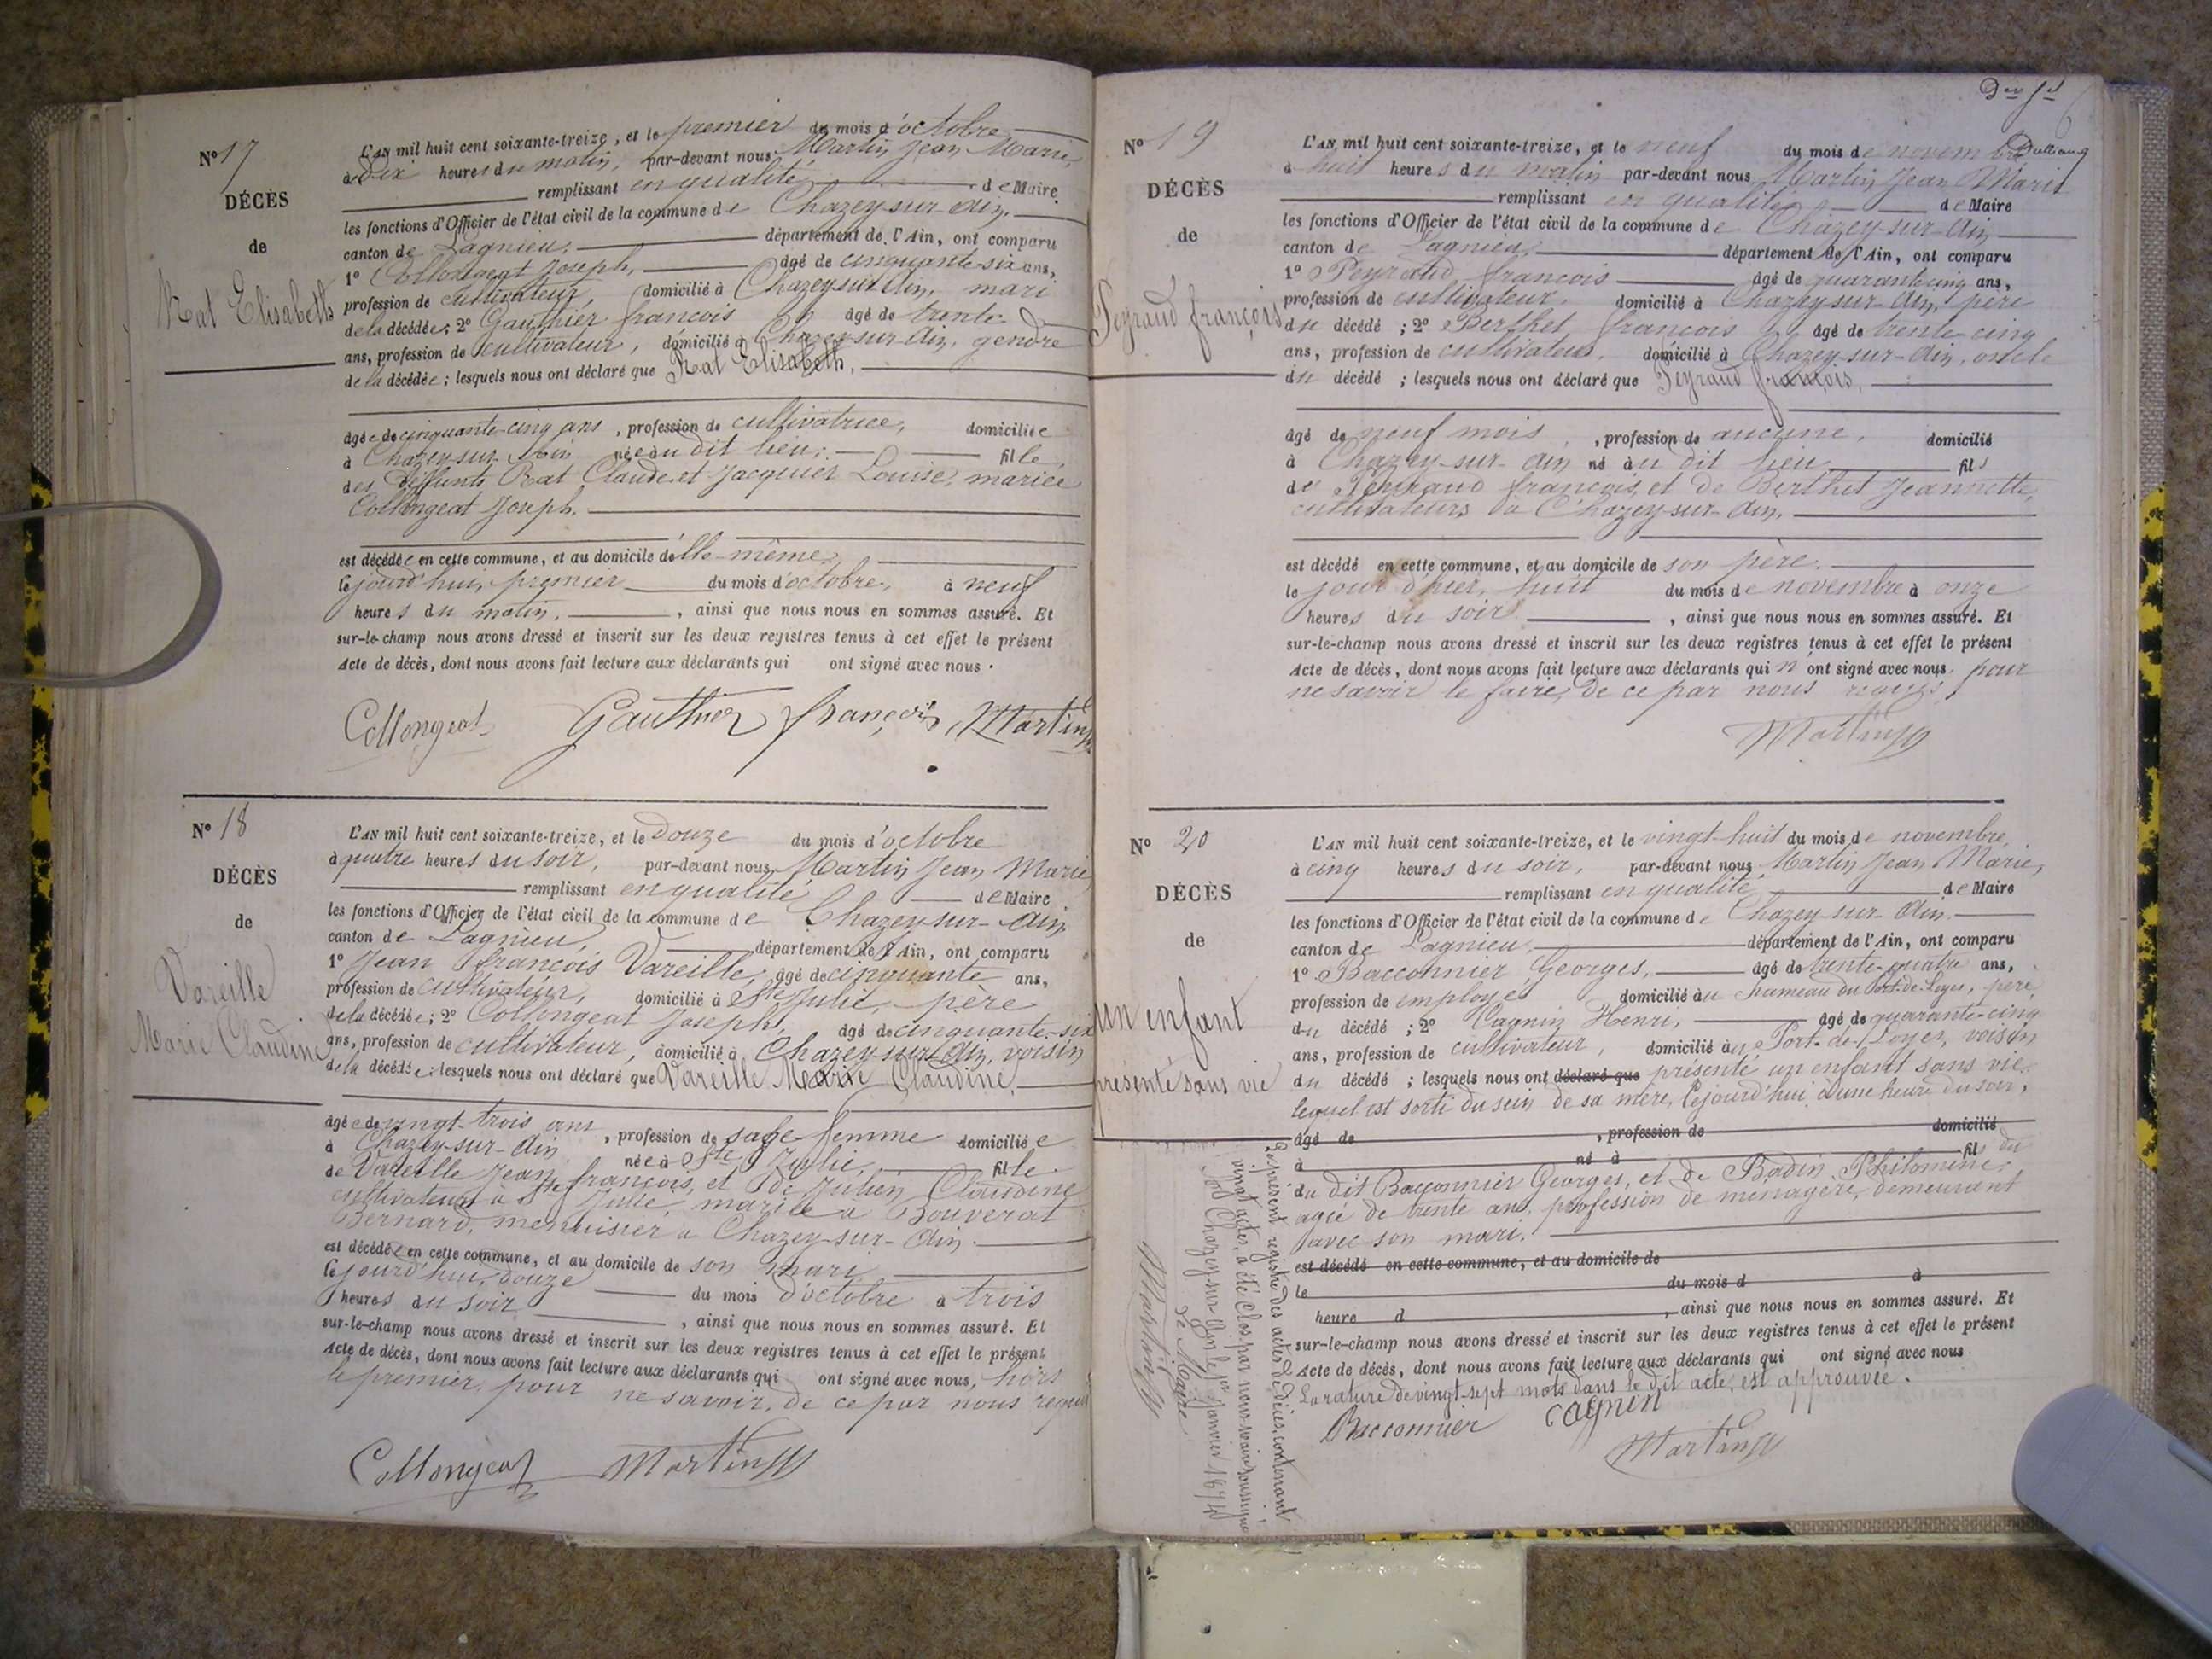 N° 17
DÉCÈS
de
Rat Elisabeth
L'AN mil huit cent soixante-treize, et le premier du mois d'octobre
à dix heures du matin, par-devant nous Martin Jean Marie,
remplissant en qualité de Maire.
les fonctions d'Officier de l'état civil de la commune de Chazey-sur-Ain,
canton de Lagnieu, département de l'Ain, ont comparu
1° Collongeat Joseph, âgé de cinquante-six ans,
profession de cultivateur, domicilié à Chazey-sur-Ain, mari
de la décédée; 2° Gauthier françois âgé de trente
ans, profession de cultivateur, domicilié à Chazey-sur-Ain, gendre
de la décédée; lesquels nous ont déclaré que Rat Elisabeth,
âgée de cinquante-cinq ans, profession de cultivatrice, domiciliée
à Chazey-sur-Ain née au dit lieu, fille
des deffunts Rat Claude et Jacquier Louise, mariée
Collongeat Joseph.
est décédée en cette commune, et au domicile d'elle-même,
le jourd'hui, premier du mois d'octobre, à neuf
heures du matin, ainsi que nous nous en sommes assuré. Et
sur-le-champ nous avons dressé et inscrit sur les deux registres tenus à cet effet le présent
Acte de décès, dont nous avons fait lecture aux déclarants qui ont signé avec nous.
Collongeat Gauthier françois Martin
N° 18
DÉCÈS
de
Vareille
Marie Claudine
L'AN mil huit cent soixante-treize, et le douze du mois d'octobre
à quatre heures du soir, par-devant nous Martin Jean Marie,
remplissant en qualité de Maire.
les fonctions d'Officier de l'état civil de la commune de Chazey-sur-Ain
canton de Lagnieu, département de l'Ain, ont comparu
1° Jean françois Vareille, âgé de cinquante ans,
profession de cultivateur, domicilié à Ste Julie, père
de la décédée; 2° Collongeat Joseph, âgé de cinquante-six
ans, profession de cultivateur, domicilié à Chazey-sur-Ain, voisin
de la décédée; lesquels nous ont déclaré que Vareille Marie Claudine,
âgée de vingt trois ans, profession de sage-femme domiciliée
à Chazey-sur-Ain née à Ste Julie, fille
de Vareille Jean françois, et de Julien Claudine
cultivateurs à Ste Julie, mariée à Bouverat
Bernard, menuisier à Chazey-sur-Ain.
est décédée en cette commune, et au domicile de son mari
le jourd'hui, douze du mois d'octobre à trois
heures du soir, ainsi que nous nous en sommes assuré. Et
sur-le-champ nous avons dressé et inscrit sur les deux registres tenus à cet effet le présent
Acte de décès, dont nous avons fait lecture aux déclarants qui ont signé avec nous, hors
le premier, pour ne savoir, de ce par nous requis
Collongeat Martin
N° 19
DÉCÈS
de
Peyraud françois
L'AN mil huit cent soixante-treize, et le neuf du mois de novembre
à huit heures du matin par-devant nous Martin Jean Marie
remplissant en qualité de Maire
les fonctions d'Officier de l'état civil de la commune de Chazey-sur-Ain
canton de Lagnieu, département de l'Ain, ont comparu
1° Peyraud françois âgé de quarante cinq ans,
profession de cultivateur, domicilié à Chazey-sur-Ain, père
du décédé; 2° Berthet françois âgé de trente-cinq
ans, profession de cultivateur, domicilié à Chazey-sur-Ain, oncle
du décédé; lesquels nous ont déclaré que Peyraud françois,
âgé de neuf mois, profession de aucune, domicilié
à Chazey-sur-Ain né au dit lieu fils
de Peyraud françois, et de Berthet Jeannette,
cultivateurs à Chazey-sur-Ain.
est décédé en cette commune, et au domicile de son père.
le jour d'hier, huit du mois de novembre à onze
heures du soir, ainsi que nous nous en sommes assuré. Et
sur-le-champ nous avons dressé et inscrit sur les deux registres tenus à cet effet le présent
Acte de décès, dont nous avons fait lecture aux déclarants qui n'ont signé avec nous, pour
ne savoir le faire, de ce par nous requis,
Martin
N° 20
DÉCÈS
de
Un enfant
présenté sans vie
L'AN mil huit cent soixante-treize, et le vingt-huit du mois de novembre,
à cinq heures du soir, par-devant nous Martin Jean Marie,
remplissant en qualité de Maire
les fonctions d'Officier de l'état civil de la commune de Chazey-sur-Ain.
canton de Lagnieu, département de l'Ain, ont comparu
1° Bacconnier Georges, âgé de trente-quatre ans,
profession de employé domicilié au hameau du Port-de-Loyes, père
du décédé; 2° Cagnin Henri, âgé de quarante-cinq
ans, profession de cultivateur, domicilié au Port-de-Loyes, voisin
du décédé; lesquels nous ont déclaré que présenté un enfant sans vie
lequel est sorti du sein de sa mère, le jourd'hui à une heure du soir,
âgé de , profession de domicilié
à né à fils du
du dit Bacconnier Georges, et de Badin Philomène,
agée de trente ans, profession de ménagère, demeurant
avec son mari.
est décédé en cette commune, et au domicile de
le du mois d à
heure d , ainsi que nous nous en sommes assuré. Et
sur-le-champ nous avons dressé et inscrit sur les deux registres tenus à cet effet le présent
Acte de décès, dont nous avons fait lecture aux déclarants qui ont signé avec nous
La rature de vingt-sept mots dans le dit acte, est approuvée.
Bacconnier Cagnin
Martin
Le présent registre des actes de décès, contenant
vingt actes, a été clos par nous maire soussigné
à Chazey-sur-Ain le 1er janvier 1874
Le Maire
Martin